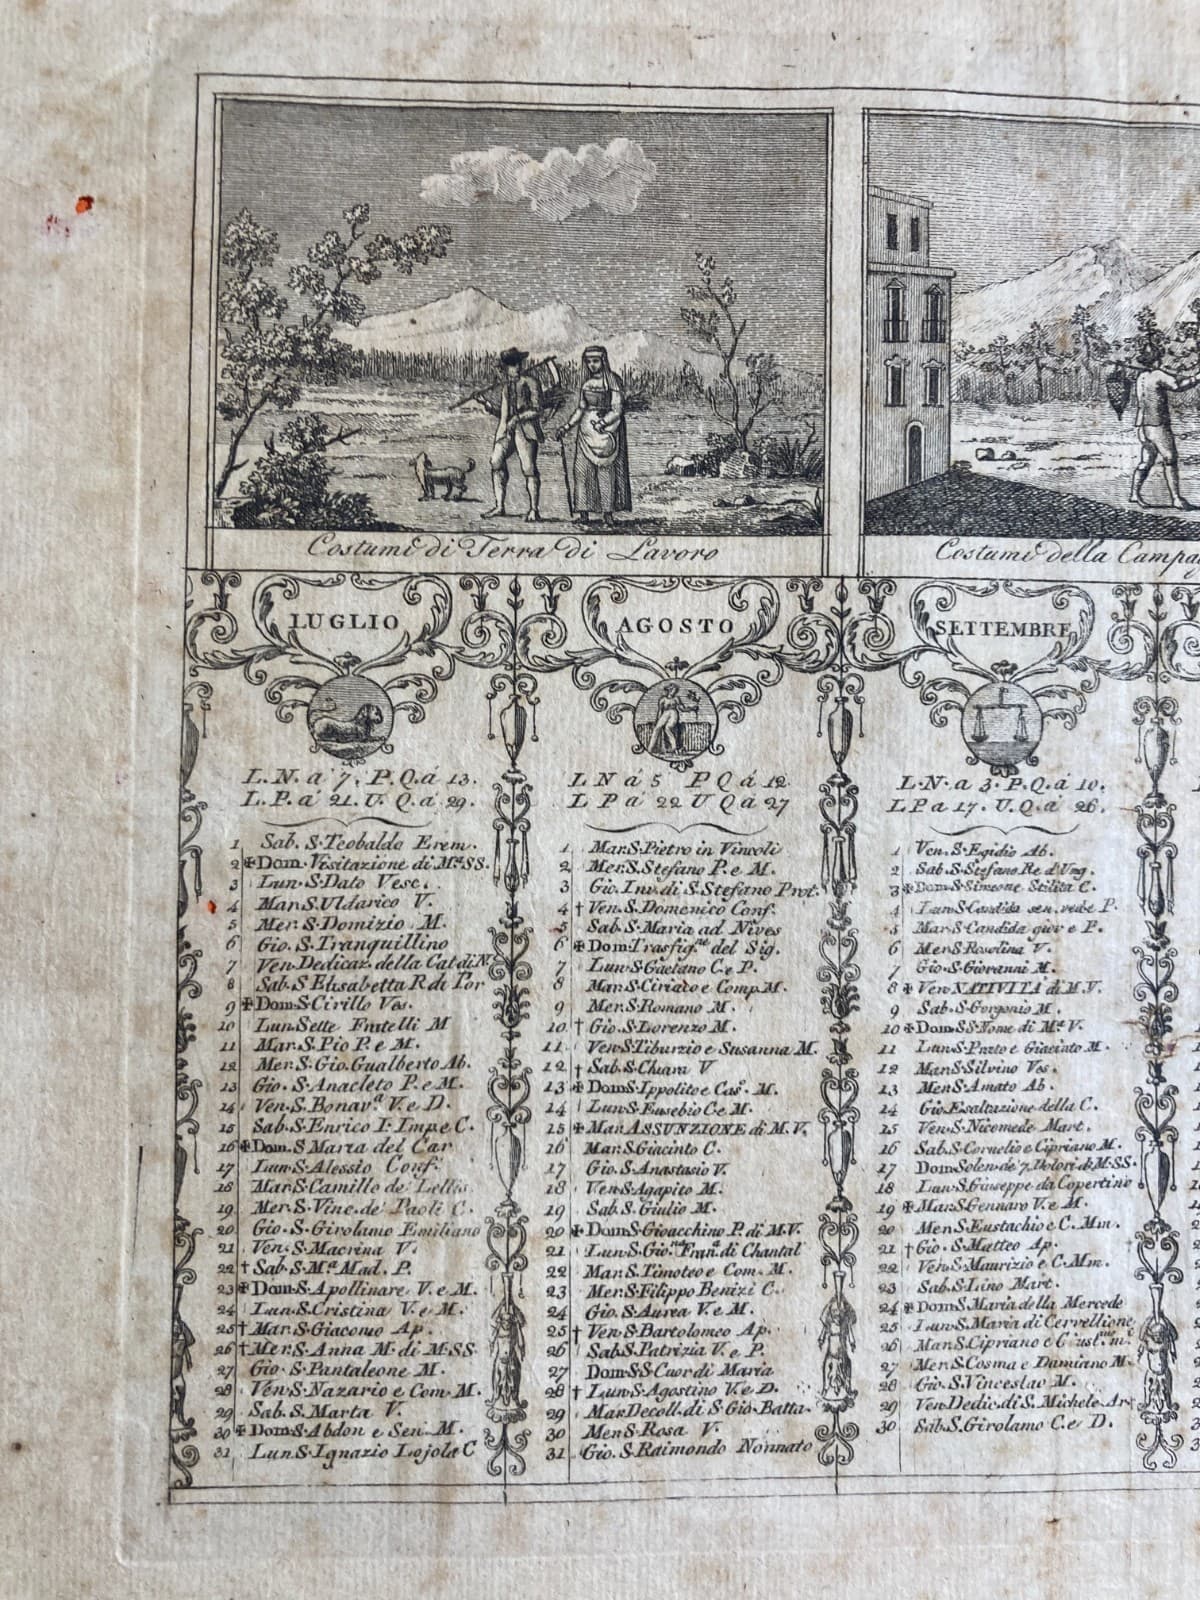 Costumi di Terra di Lavoro
Costumi della Campa
LUGLIO
L. N. a 7. P. Q. á 13.
L. P. a 21. U. Q. a 29.
1 Sab. S. Teobaldo Erem.
2 ✠ Dom. Visitazione di M.ª SS.
3 Lun. S. Dato Vesc.
4 Mar. S. Uldarico V.
5 Mer. S. Domizio M.
6 Gio. S. Tranquillino
7 Ven. Dedicaz. della Cat. di N.
8 Sab. S. Elisabetta R. di Por
9 ✠ Dom. S. Cirillo Ves.
10 Lun. Sette Fratelli M
11 Mar. S. Pio P. e M.
12 Mer. S. Gio. Gualberto Ab.
13 Gio. S. Anacleto P. e M.
14 Ven. S. Bonav.ª V. e D.
15 Sab. S. Enrico I. Imp. e C.
16 ✠ Dom. S. Maria del Car
17 Lun. S. Alessio Conf.
18 Mar. S. Camillo de Lellis
19 Mer. S. Vinc. de Paoli C.
20 Gio. S. Girolamo Emiliano
21 Ven. S. Macrina V.
22 † Sab. S. M.ª Mad. P.
23 ✠ Dom. S. Apollinare V. e M.
24 Lun. S. Cristina V. e M.
25 † Mar. S. Giacomo Ap.
26 † Mer. S. Anna M. di M. SS.
27 Gio. S. Pantaleone M.
28 Ven. S. Nazario e Com. M.
29 Sab. S. Marta V.
30 ✠ Dom. S. Abdon e Sen. M.
31 Lun. S. Ignazio Lojola C
AGOSTO
L N á 5 P Q á 12
L P a 22 U Q a 27
1 Mar. S. Pietro in Vincoli
2 Mer. S. Stefano P. e M.
3 Gio. Inv. di S. Stefano Prot.
4 † Ven. S. Domenico Conf.
5 Sab. S. Maria ad Nives
6 ✠ Dom. Trasfig.ne del Sig.
7 Lun. S. Gaetano C. e P.
8 Mar. S. Ciriaco e Comp. M.
9 Mer. S. Romano M.
10 † Gio. S. Lorenzo M.
11 Ven. S. Tiburzio e Susanna M.
12 † Sab. S. Chiara V
13 ✠ Dom. S. Ippolito e Cas.º M.
14 Lun. S. Eusebio C. e M.
15 ✠ Mar. ASSUNZIONE di M. V.
16 Mar. S. Giacinto C.
17 Gio. S. Anastasio V.
18 Ven. S. Agapito M.
19 Sab. S. Giulio M.
20 ✠ Dom. S. Gioacchino P. di M. V.
21 Lun. S. Gio. Fran.ª di Chantal
22 Mar. S. Timoteo e Com. M.
23 Mer. S. Filippo Benizi C.
24 Gio. S. Aurea V. e M.
25 † Ven. S. Bartolomeo Ap.
26 Sab. S. Patrizia V. e P.
27 Dom. S. S. Cuor di Maria
28 † Lun. S. Agostino V. e D.
29 Mar. Decoll. di S. Gio. Batta.
30 Mer. S. Rosa V.
31 Gio. S. Raimondo Nonnato
SETTEMBRE
L. N. a 3. P. Q. á 10.
L P a 17. U. Q. á 26.
1 Ven. S. Egidio Ab.
2 Sab. S. Stefano Re d'Ung.
3 ✠ Dom. S. Simeone Stilita C.
4 Lun. S. Candida sen. P.
5 Mar. S. Candida giov. e P.
6 Mer. S. Rosolina V.
7 Gio. S. Giovanni M.
8 ✠ Ven. NATIVITÀ di M. V.
9 Sab. S. Gorgonio M.
10 ✠ Dom. S. S. Nome di M.ª V.
11 Lun. S. Proto e Giacinto M.
12 Mar. S. Silvino Ves.
13 Mer. S. Amato Ab.
14 Gio. Esaltazione della C.
15 Ven. S. Nicomede Mart.
16 Sab. S. Cornelio e Cipriano M.
17 Dom. Solen. de' 7. Dolori di M. SS.
18 Lun. S. Giuseppe da Copertino
19 ✠ Mar. S. Gennaro V. e M.
20 Mer. S. Eustachio e C. Mm.
21 † Gio. S. Matteo Ap.
22 Ven. S. Maurizio e C. Mm.
23 Sab. S. Lino Mart.
24 ✠ Dom. S. Maria della Mercede
25 Lun. S. Maria di Cervellione
26 Mar. S. Cipriano e
27 Mer. S. Cosma e Damiano M.
28 Gio. S. Vinceslao M.
29 Ven. Dedic. di S. Michele Ar
30 Sab. S. Girolamo C. e D.